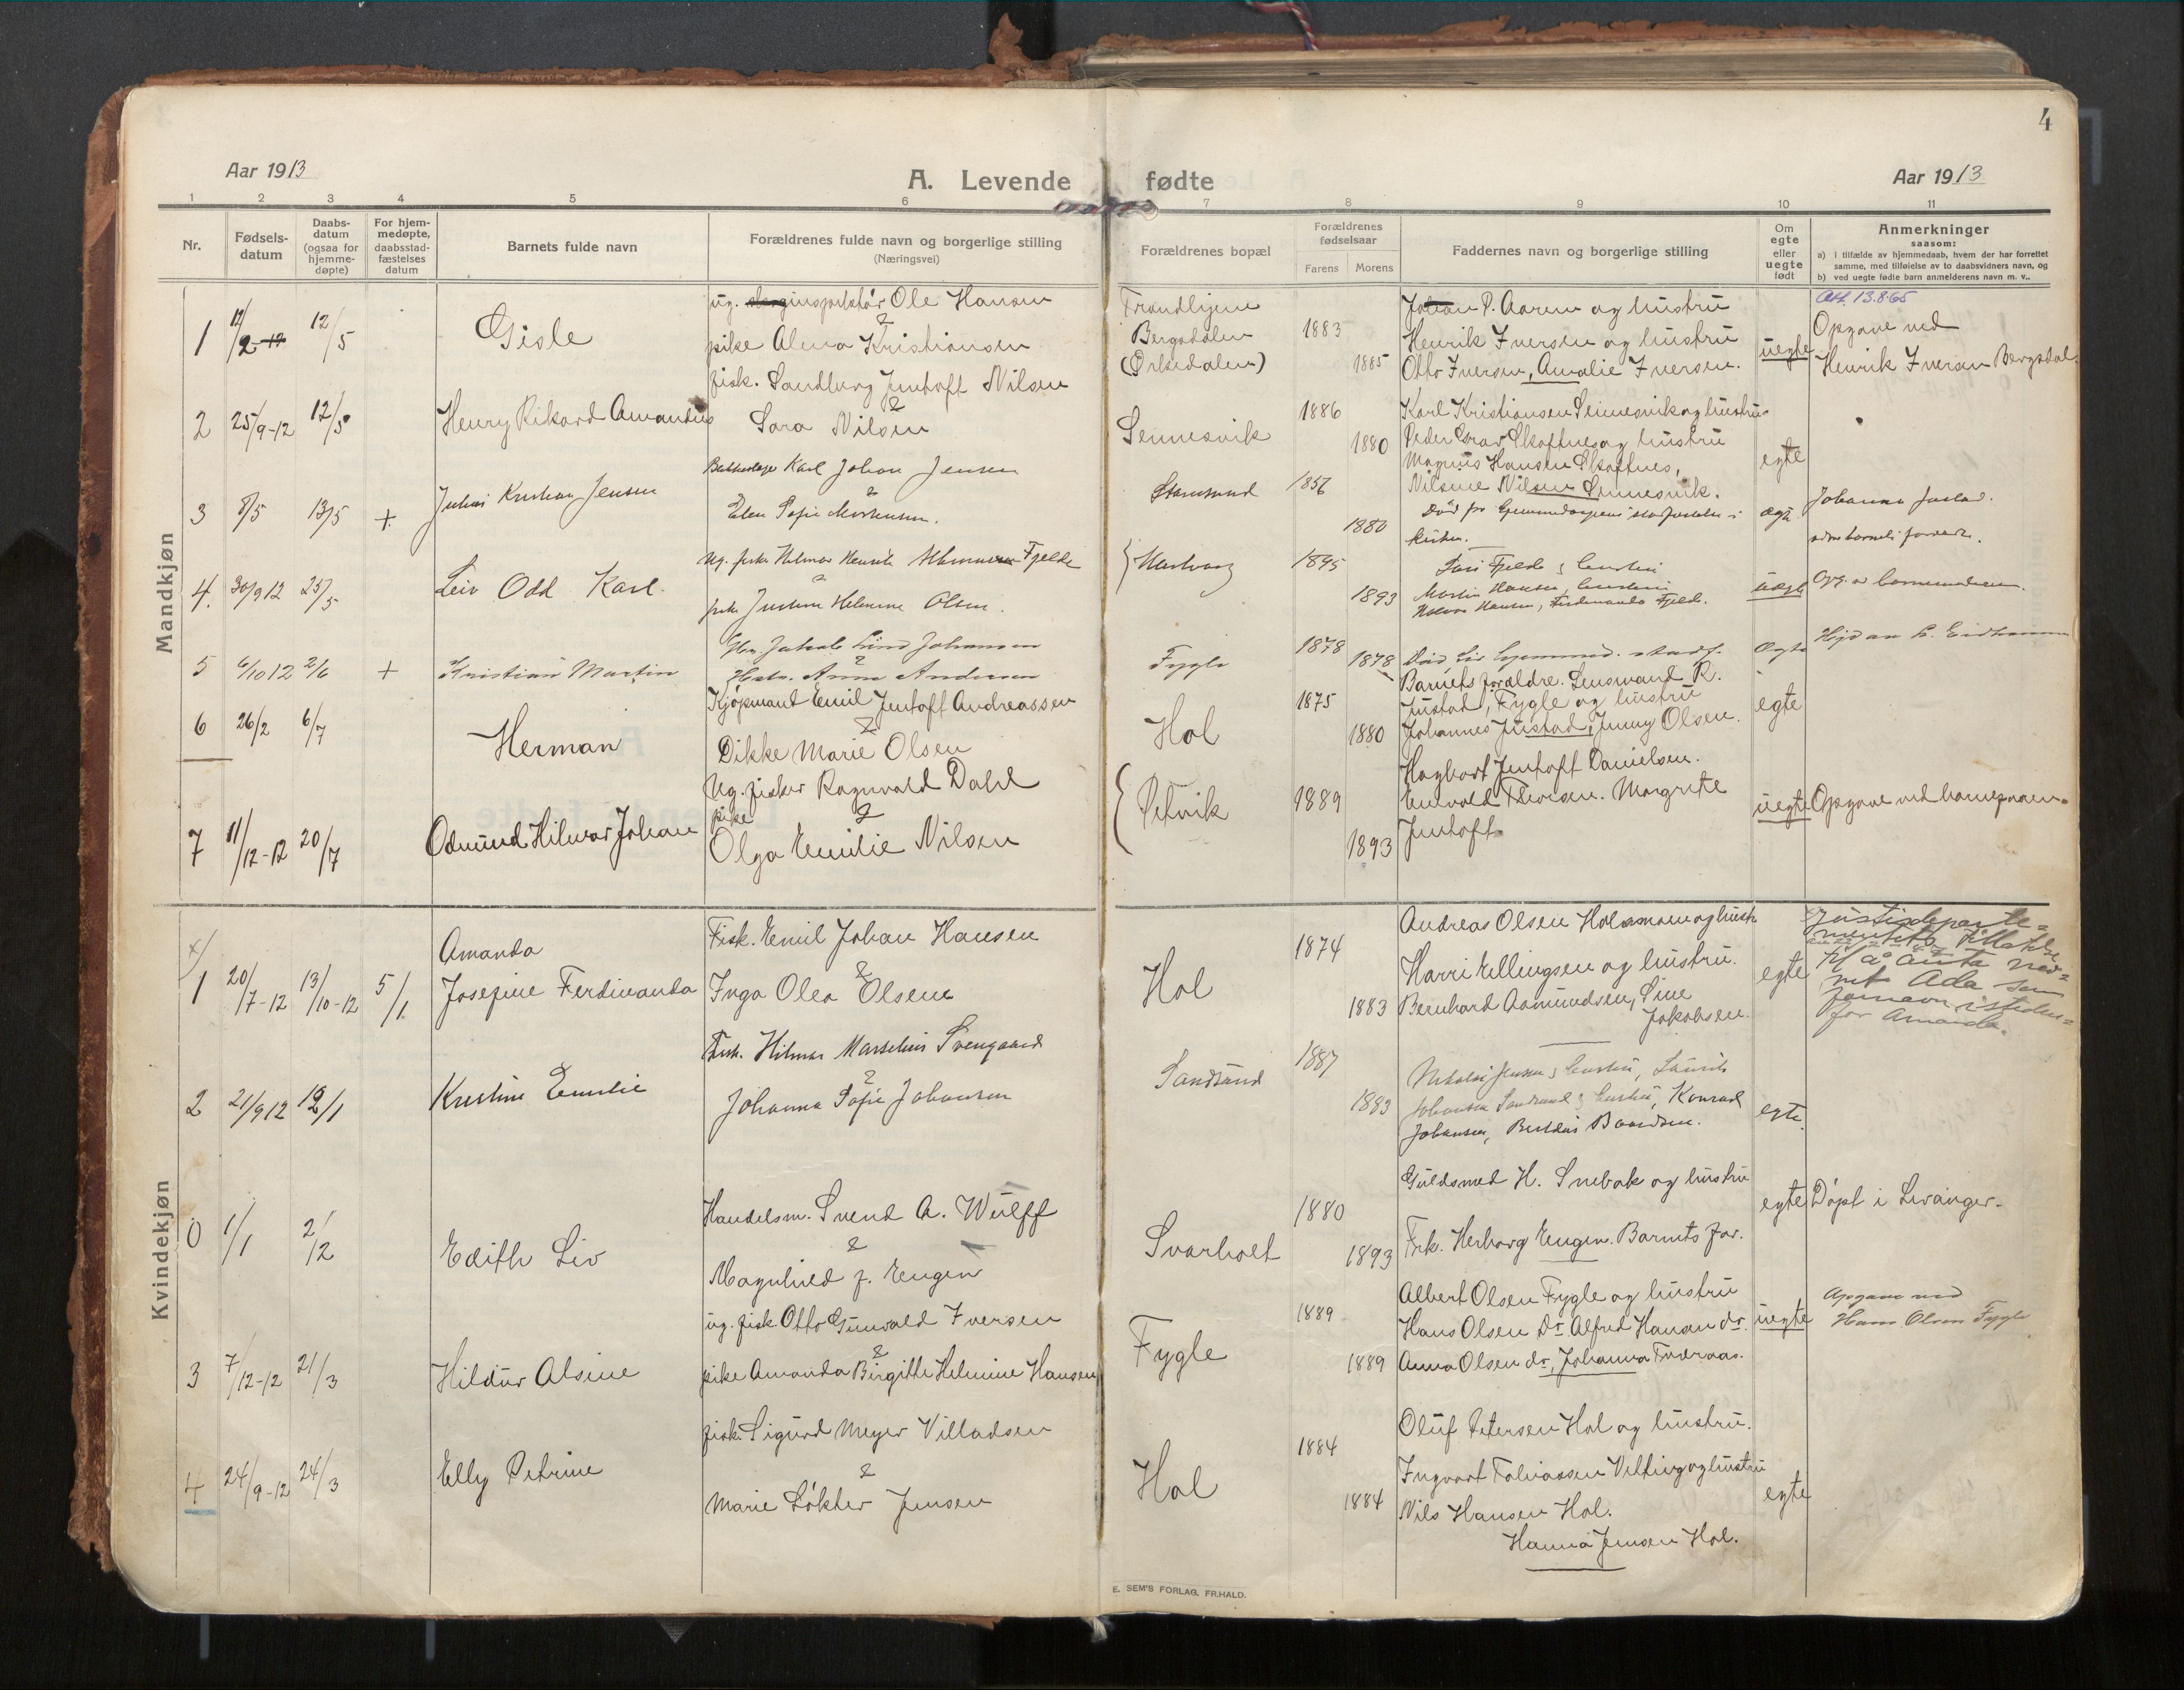 4
Aar 1913
A. Levende fødte
Aar 1913
1 2 3 4 5 6 7 8 9 10 11
Nr.
Fødsels-
datum
Daabs-
datum
(ogsaa for
hjemme-
døpte)
For hjem-
medøpte,
daabsstad-
fæstelses
datum
Barnets fulde navn
Forældrenes fulde navn og borgerlige stilling
(Næringsvei)
Forældrenes bopæl
Forældrenes
fødselsaar
Farens Morens
Faddernes navn og borgerlige stilling
Om
egte
eller
uegte
født
Anmerkninger
saasom:
a) i tilfælde av hjemmedaab, hvem der har forrettet
samme, med tilføielse av to daabsvidners navn, og
b) ved uegte fødte barn anmelderens navn m. v..
Mandkjøn
1 12/2 12/5 Gisle
ug. Ole Hansen
&
pike Alma Kristiansen
Trondhjem
Bergsdalen
(Orkedalen)
1883
1885
Johan P. Aaren og hustru
Henrik Iversen og hustru
Otto Iversen, Amalie Iversen.
uegte
Att. 13.8.65
Opgave ved
Henrik Iversen Bergsdal.
2 25/9-12 12/5 Henry Rikard Amandus
fisk. Sandberg Jentoft Nilsen
&
Sara Nilsen
Sennesvik
1886
1880
Karl Kristiansen Sennesvik og hustru
Peder Skaftnes og hustru
Magnus Hansen Skaftnes,
Nilsine Nilsen Sennesvik.
egte
3 8/5 13/5 + Julius Kristian Jensen
Karl Johan Jensen
&
Elen Sofie Mortensen.
Stamsund
1856
1880
Død før hjemmedaapens stadfestelse i
kirken.
ægte
Johanna
4. 30/9 12 25/5 Leiv Odd Karl.
Ug. fisker Hilmar Henrik Fjelde
&
pike Justine Helmine Olsen.
1895
1893
Fjelde & hustru
Martin Hansen, hustru
Hansen, Ferdinanda Fjelde.
uægte
Opg. av barnemoderen
5 6/10 12 2/6 + Kristian Martin
Jakob Lind Johansen
&
Hustr. Anna Andersen
Fygle
1878
1878
Død før hjemmed. stadf.
Ægte
6 26/2 6/7 Herman
Kjøpmand Emil Jentoft Andreassen
&
Dikke Marie Olsen
Hol
1875
1880
Barnets forældre. Lensmand R.
Justad, Fygle og hustru
Johannes Justad, Jenny Olsen.
egte
7 11/12-12 20/7 Odmund Hilmar Johan
Ug. fisker Ragnvald Dahl
pike &
Olga Emilie Nilsen
Petvik
1889
1893
Hagbart Jentoft Danielsen.
Margrete
Jentoft
uegte
Opgave ved
Kvindekjøn
x/
1 20/7-12 13/10-12 5/1
Amanda
Josefine Ferdinanda
Fisk. Emil Johan Hansen
&
Inga Olea Olsen
Hol
1874
1883
Andreas Olsen Holsmoen og hustr.
Harri Ellingsen og hustru.
Bernhard Aamundsen, Sine
Jakobsen.
egte
x/ Justisdeparte=
mentets tillatelse
til å anta nav=
net Ada som
fornavn isteden=
for Amanda.
2 21/9 12 12/1 Kristine Emilie
Fisk. Hilmar Marselius Svengaard
&
Johanna Sofie Johansen
Sandsund
1887
1883
Nikolai Jensen & hustru, Laurits
Johansen Sandsund & hustru, Konrad
Johansen, Baardsen.
egte.
0 1/1 2/2 Edith Liv
Handelsm. Svend A. Wulff
&
Magnhild f. Engen
Svarholt
1880
1893
Guldsmed H. Snebak og hustru
Frk. Herborg Engen. Barnets far.
egte
Døpt i Levanger.
3 7/12-12 21/3 Hildur Alsine
ug. fisk. Otto Gunvald Iversen
&
pike Amanda Birgitte Helmine Hansen
Fygle
1889
1889
Albert Olsen Fygle og hustru
Hans Olsen do. Alfred Hansen do.
Anna Olsen do., Johanna Tveraas.
uegte
Opgave ved
Hans Olsen Fygle
4 24/9-12 24/3 Elly Petrine
fisk. Sigurd Meyer Villadsen
&
Marie Løkter Jensen
Hol
1884
1884
Oluf Petersen Hol og hustru.
Ingvart Tobiassen Velting og hustru
Nils Hansen Hol.
Hanna Jensen Hol.
egte
E. SEM'S FORLAG. FR.HALD.